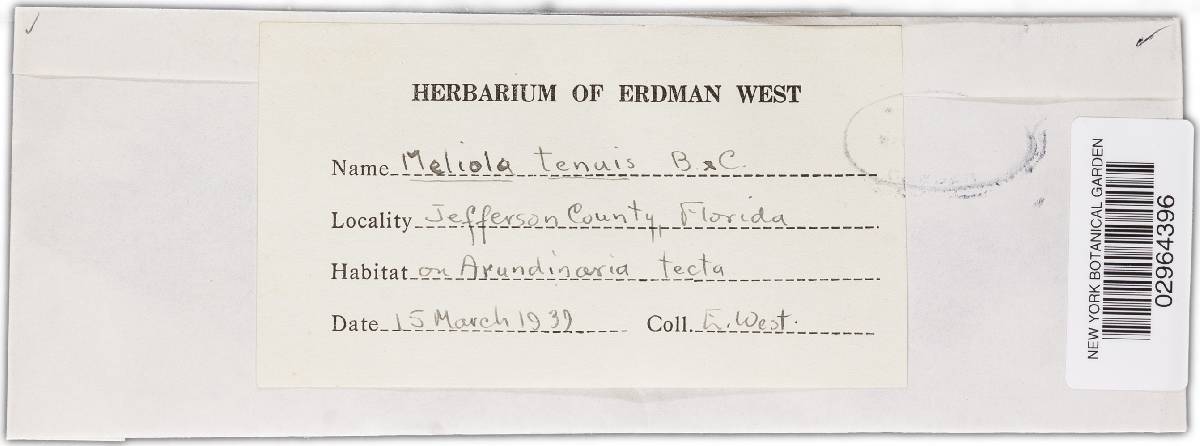 HERBARIUM OF ERDMAN WEST
Name Meliola tenuis B & C.
Locality Jefferson County, Florida
Habitat on Arundinaria tecta
Date 15 March 1939 Coll. E. West.
NEW YORK BOTANICAL GARDEN
02964396